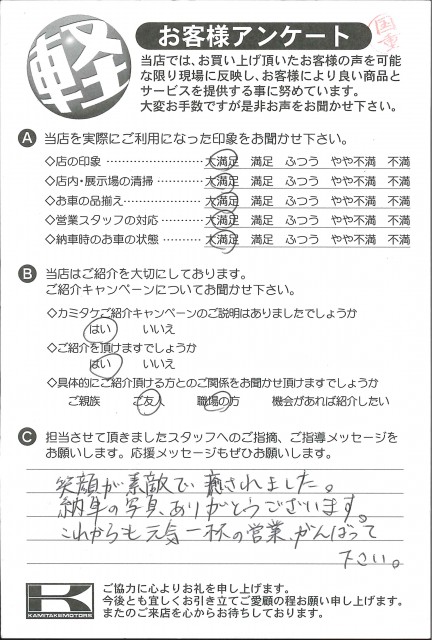 軽
お客様アンケート
国重
当店では、お買い上げ頂いたお客様の声を可能
な限り現場に反映し、お客様により良い商品と
サービスを提供する事に努めています。
大変お手数ですが是非お声をお聞かせ下さい。
A 当店を実際にご利用になった印象をお聞かせ下さい。
◇店の印象 大満足 満足 ふつう やや不満 不満
◇店内・展示場の清掃 大満足 満足 ふつう やや不満 不満
◇お車の品揃え 大満足 満足 ふつう やや不満 不満
◇営業スタッフの対応 大満足 満足 ふつう やや不満 不満
◇納車時のお車の状態 大満足 満足 ふつう やや不満 不満
B 当店はご紹介を大切にしております。
ご紹介キャンペーンについてお聞かせ下さい。
◇カミタケご紹介キャンペーンのご説明はありましたでしょうか
はい いいえ
◇ご紹介を頂けますでしょうか
はい いいえ
◇具体的にご紹介頂ける方とのご関係をお聞かせ頂けますでしょうか
ご親族 ご友人 職場の方 機会があれば紹介したい
C 担当させて頂きましたスタッフへのご指摘、ご指導メッセージを
お願いします。応援メッセージもぜひお願いします。
笑顔が素敵で癒されました。
納車の写真、ありがとうございます。
これからも元気一杯の営業、がんばって
下さい。
K
KAMITAKEMOTORS
ご協力に心よりお礼を申し上げます。
今後とも宜しくお引き立てご愛顧の程お願い申し上げます。
またのご来店を心からお待ちしております。